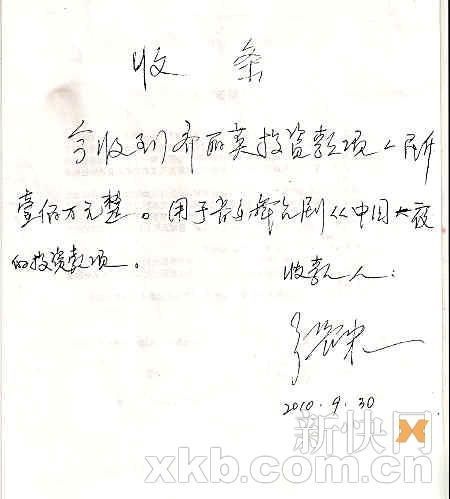 收 条
今收到齐丽英投资款项人民币
壹佰万元整。用于音乐舞台剧《中国之夜
的投资款项。
收款人：
2010.9.30
新快网
xkb.com.cn